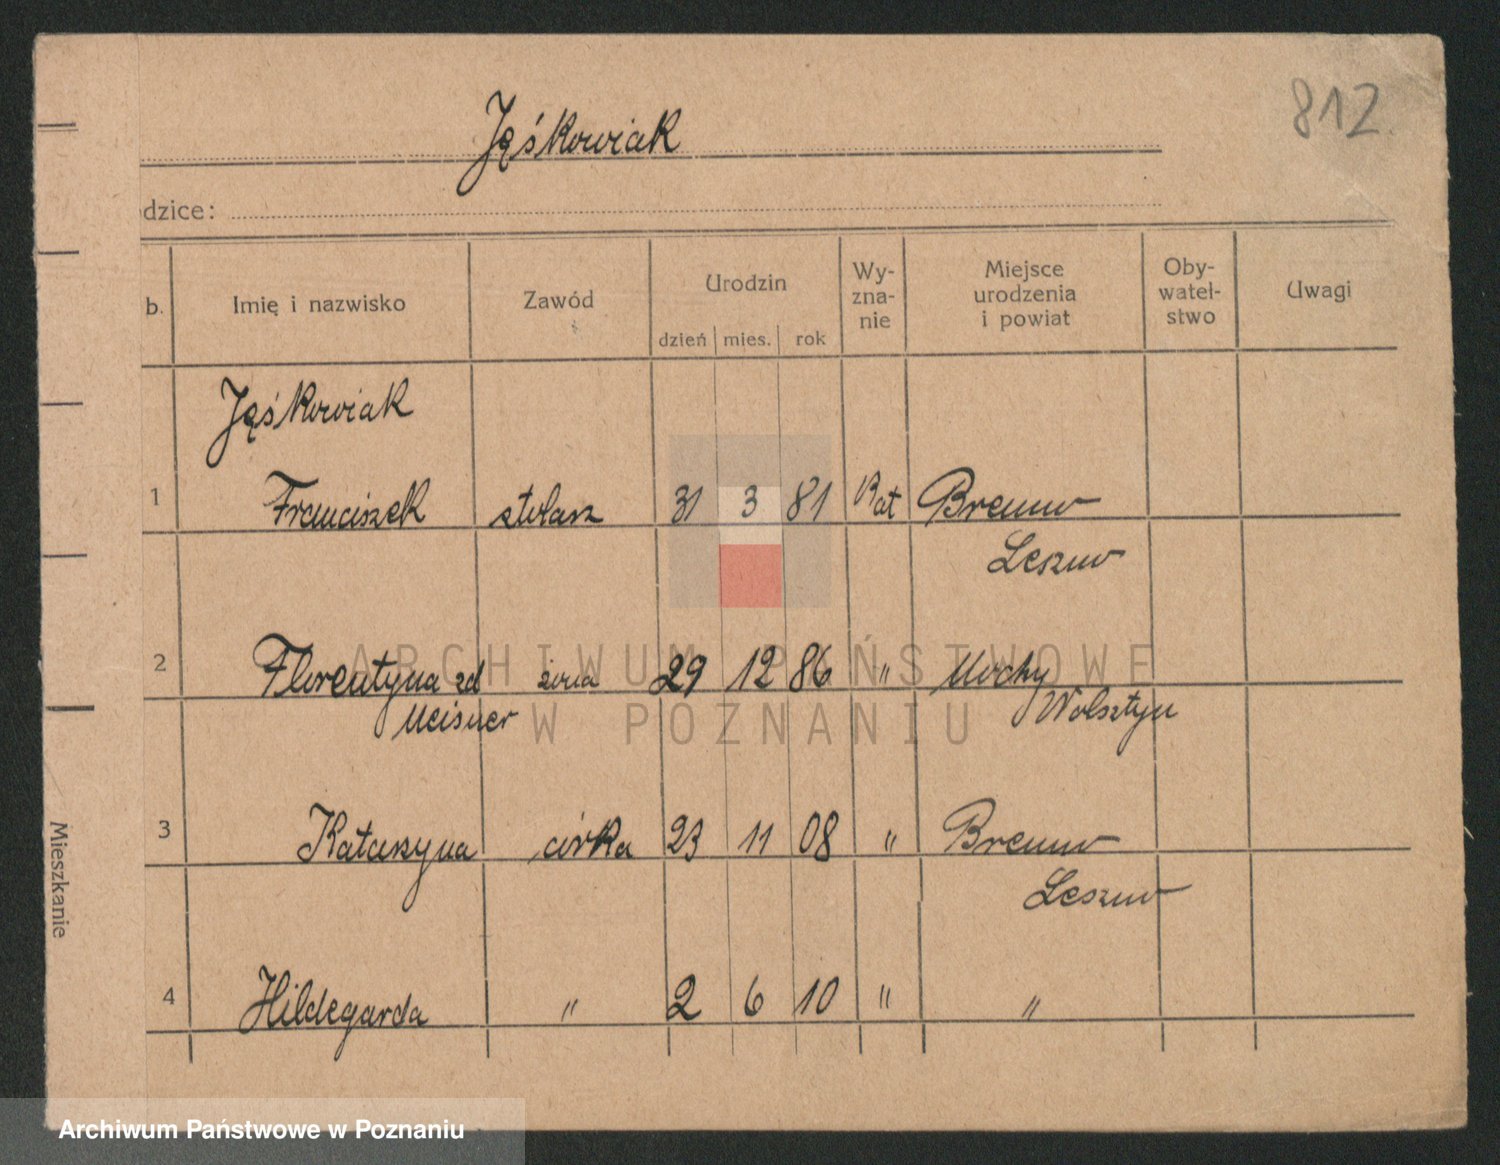 812
Jęśkowiak
odzice:
b. Imię i nazwisko Zawód Urodzin dzień mies. rok Wy-zna-nie Miejsce urodzenia i powiat Oby-watel-stwo Uwagi
Jęśkowiak
1 Franciszek stolarz 31 3 81 Kat Brenno
Leszno
2 Florentyna zd żona 29 12 86 " Mochy
Meisner Wolsztyn
3 Katarzyna córka 23 11 08 " Brenno
Leszno
4 Hildegarda " 2 6 10 " "
Mieszkanie
ARCHIWUM PAŃSTWOWE
W POZNANIU
Archiwum Państwowe w Poznaniu